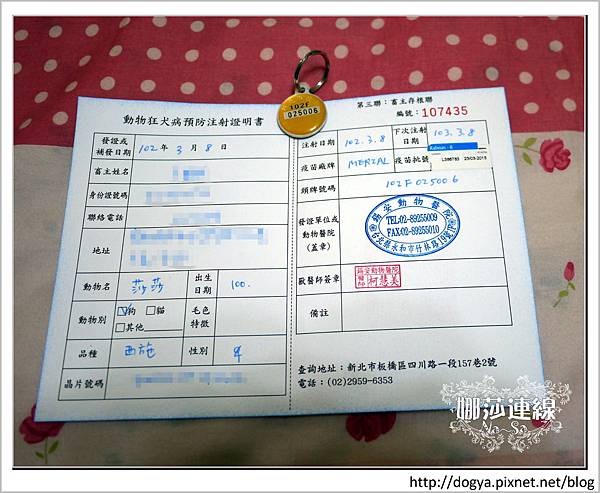 102F
025006
動物狂犬病預防注射證明書
發證或
補發日期
102 年 3 月 8 日
畜主姓名
身份證號碼
聯絡電話
地址
動物名
莎莎
出生
日期
100.
動物別
狗 貓
其他
毛色
特徵
品種
西施
性別
♀
晶片號碼
第三聯：畜主存根聯
編號：107435
注射日期
102.3.8
下次注射
日期
103.3.8
疫苗廠牌
MERIAL
疫苗批號
Rabisin - R
L386783 23/03/2015
頸牌號碼
102F025006
發證單位或
動物醫院
(蓋章)
錫安動物醫院
TEL:02-89255009
FAX:02-89255010
台北縣永和市竹林路
獸醫師簽章
錫安動物醫院
柯慧美
備註
查詢地址：新北市板橋區四川路一段157巷2號
電話：(02)2959-6353
娜莎連線
Na Sa
http://dogya.pixnet.net/blog